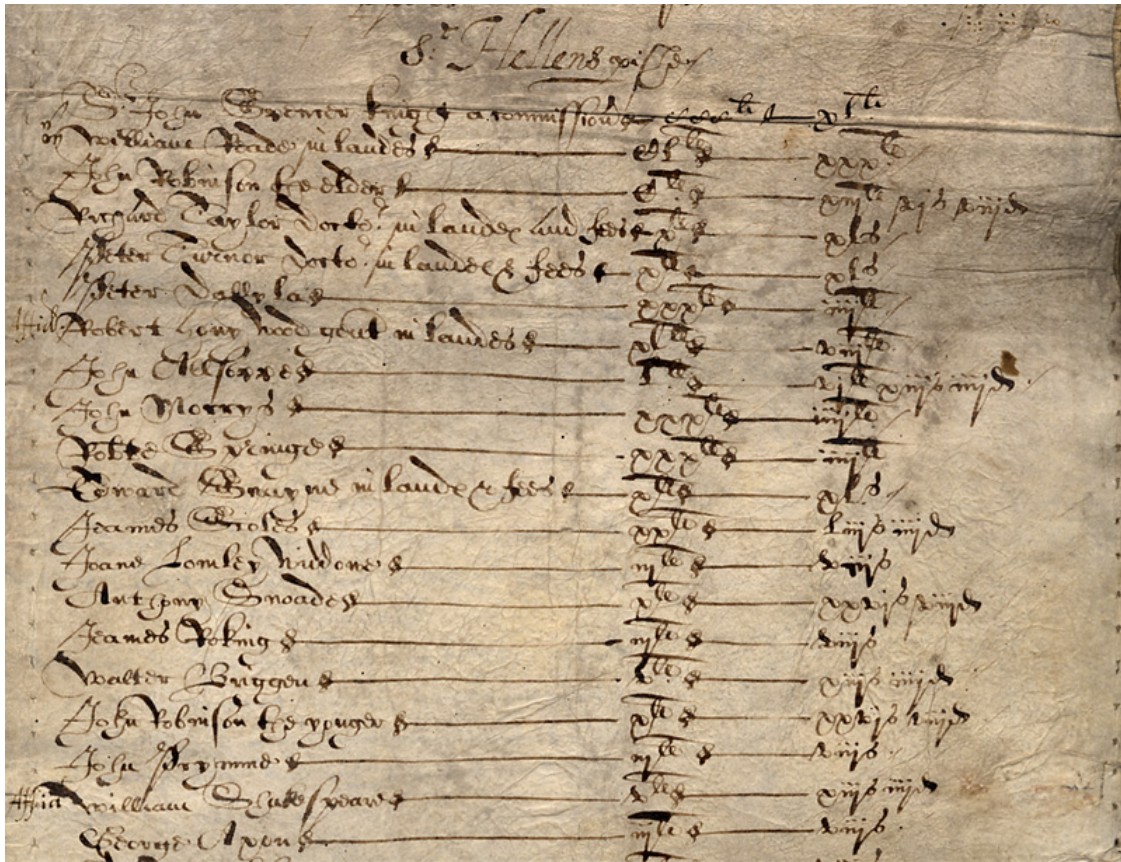 St. Hellens pishe
Sr. John Spencer knight a commissioner CCCli xlli
William Reade in landes CLli xxxli
John Robinson the elder Cli xiijli vjs viijd
Richard Taylor Doctor in landes and fees xli xls
Peter Turnor docto.r in landes & fees xli xls
Peter Dallylas xxxli iiijli
Affid. Robert Honywood gent in landes xlli viijli
John Allsoppe Lli vjli xiijs iiijd
John Morrys xxxli iiijli
Robte Springe xxxli iiijli
Edward in landes & fees xli xls
Jeames Scoles xxli liijs iiijd
Joane Lomley Widowe iijli viijs
Anthony Snoade xli xxvjs viijd
Jeames Roking iijli viijs
Walter Briggen vli xiijs iiijd
John Robinson the yonger xli xxvjs viijd
John Prymme iijli viijs
Affid William Shakespeare vli xiijs iiijd
George Axon iijli viijs